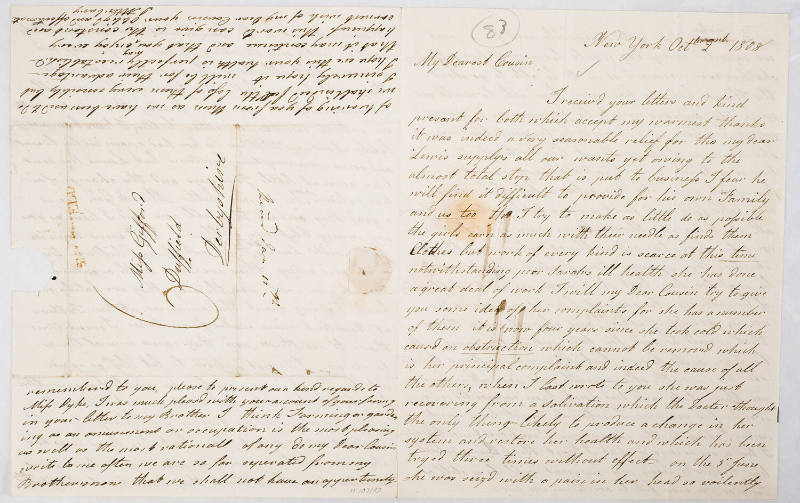 83
New York Oct 2 1808
My Dearest Cousin
I receivd your letters and kind
present for both which accept my warmest thanks
it was indeed a very seasonable relief for tho my dear
Lewis supplys all our wants yet owing to the
almost total stop that is put to business I fear he
will find it difficult to provide for his own Family
and us too tho I try to make as little do as possible
the girls earn as much with their needle as finds them
Clothes but work of every kind is scarce at this time
notwithstanding poor Sarahs ill health she has done
a great deal of work I will my Dear Cousin try to give
you some idea of her complaints for she has a number
of them it is now four years since she took cold which
causd an obstruction which cannot be removd which
is her principal complaint and indeed the cause of all
the others, when I last wrote to you she was just
recovering from a salivation which the Docter thought
the only thing likely to produce a change in her
system and restore her health and which had been
tryed three times without effect on the 5 June
she was seizd with a pain in her head so voilently
remembered to you, please to present our kind regards to
Miss Dyke, I was much pleasd with your account of your
in your letter to my Brother I think Farming or garden
ing as an amusement or occupation is the most pleasing
as well as the most rationall of any do my Dear Cousin
write to me often we are so far seperated from my
Brothers now that we shall not have an oppertunety
of hearing of you from them as we have been used to
we shall indeed feel the loss of them very severely but
I sincerely hope it will be for their advantage
I hope by this your health is perfectly reestablishd
that it may continue and that you may enjoy every
happiness this world can give is the constant and
fervent wish of my Dear Cousin your Obligd and affectionate
Miss Gifford
Duffield
Derbyshire